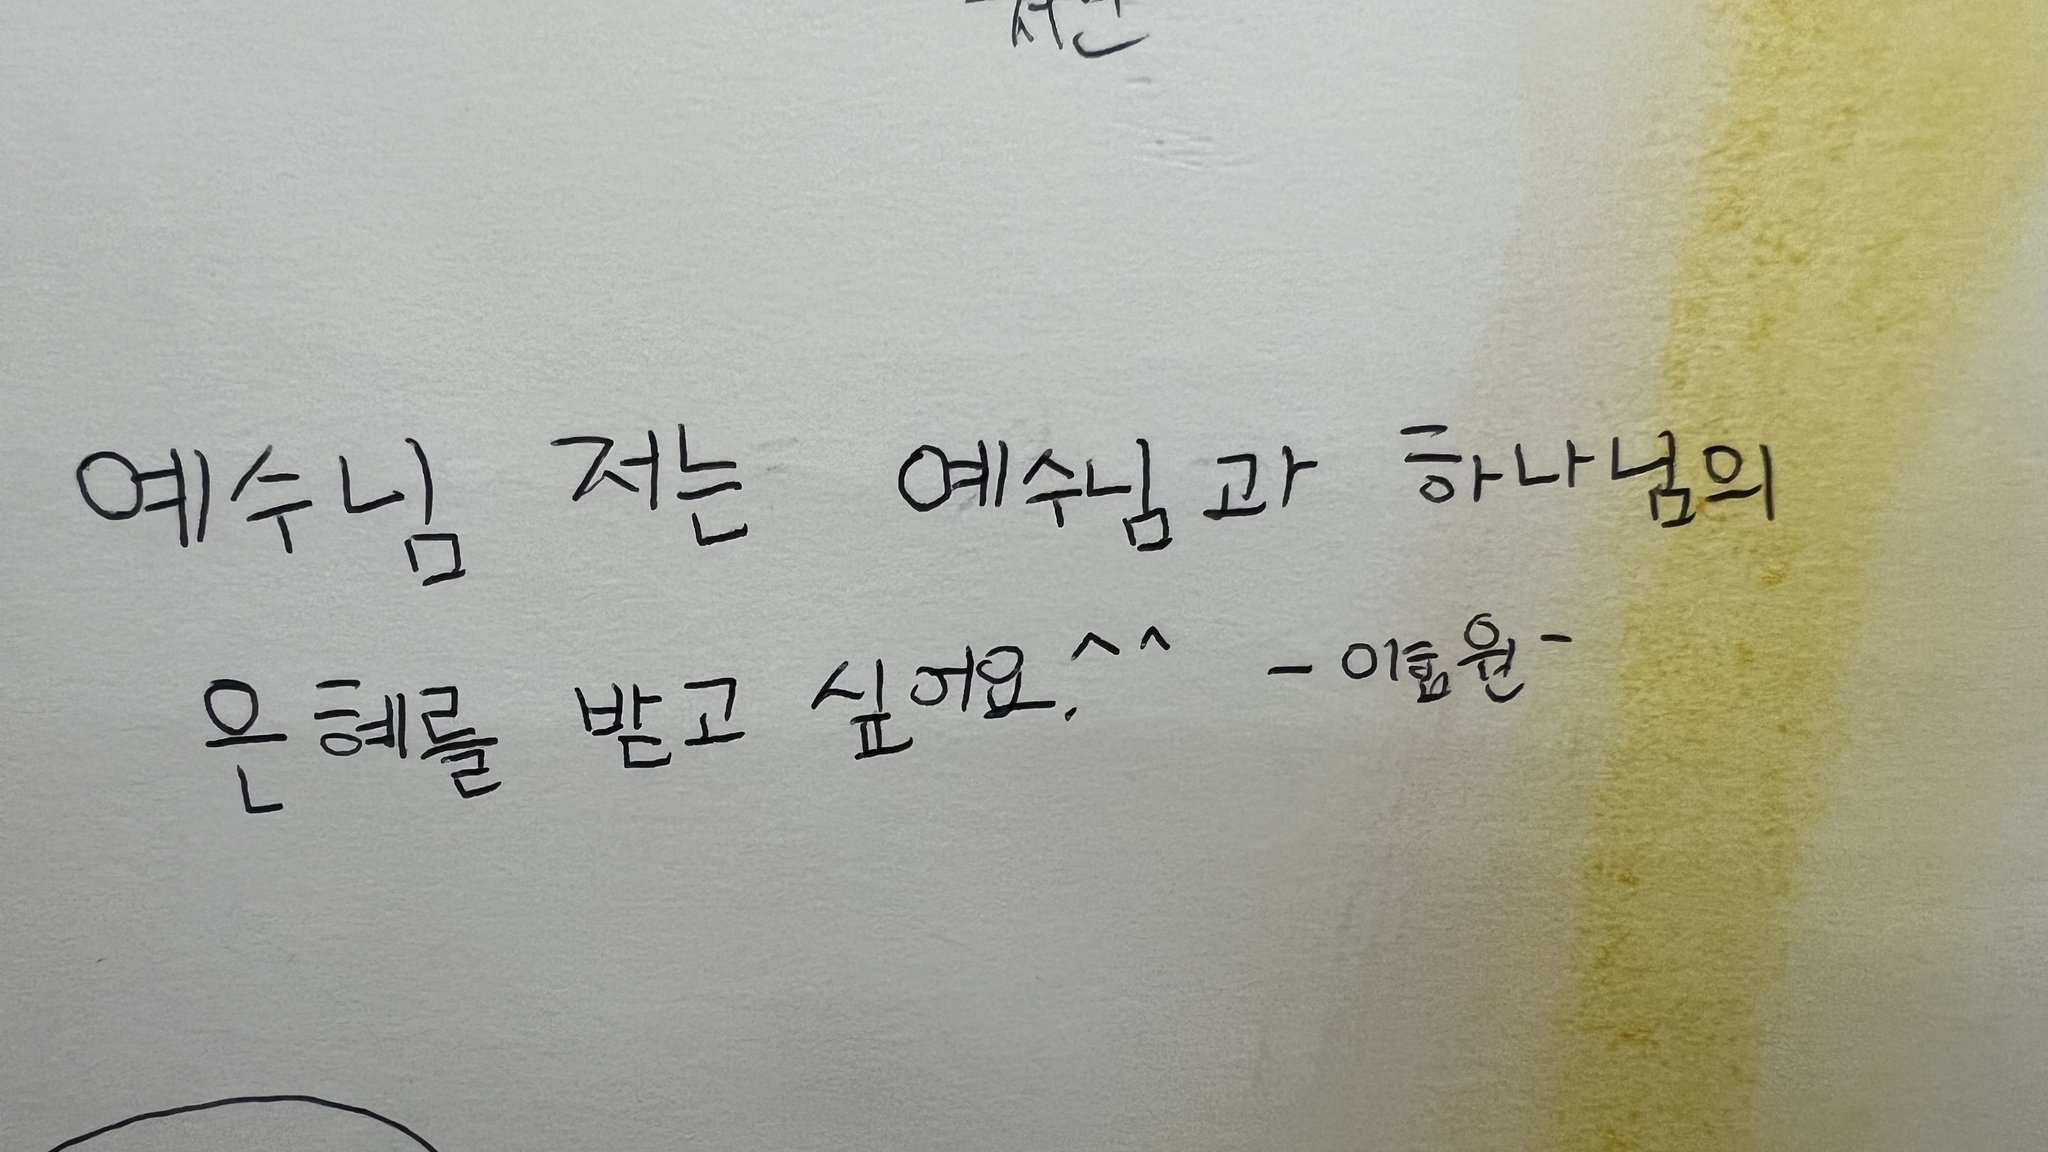 예수님 저는 예수님과 하나님의
은혜를 받고 싶어요.^^